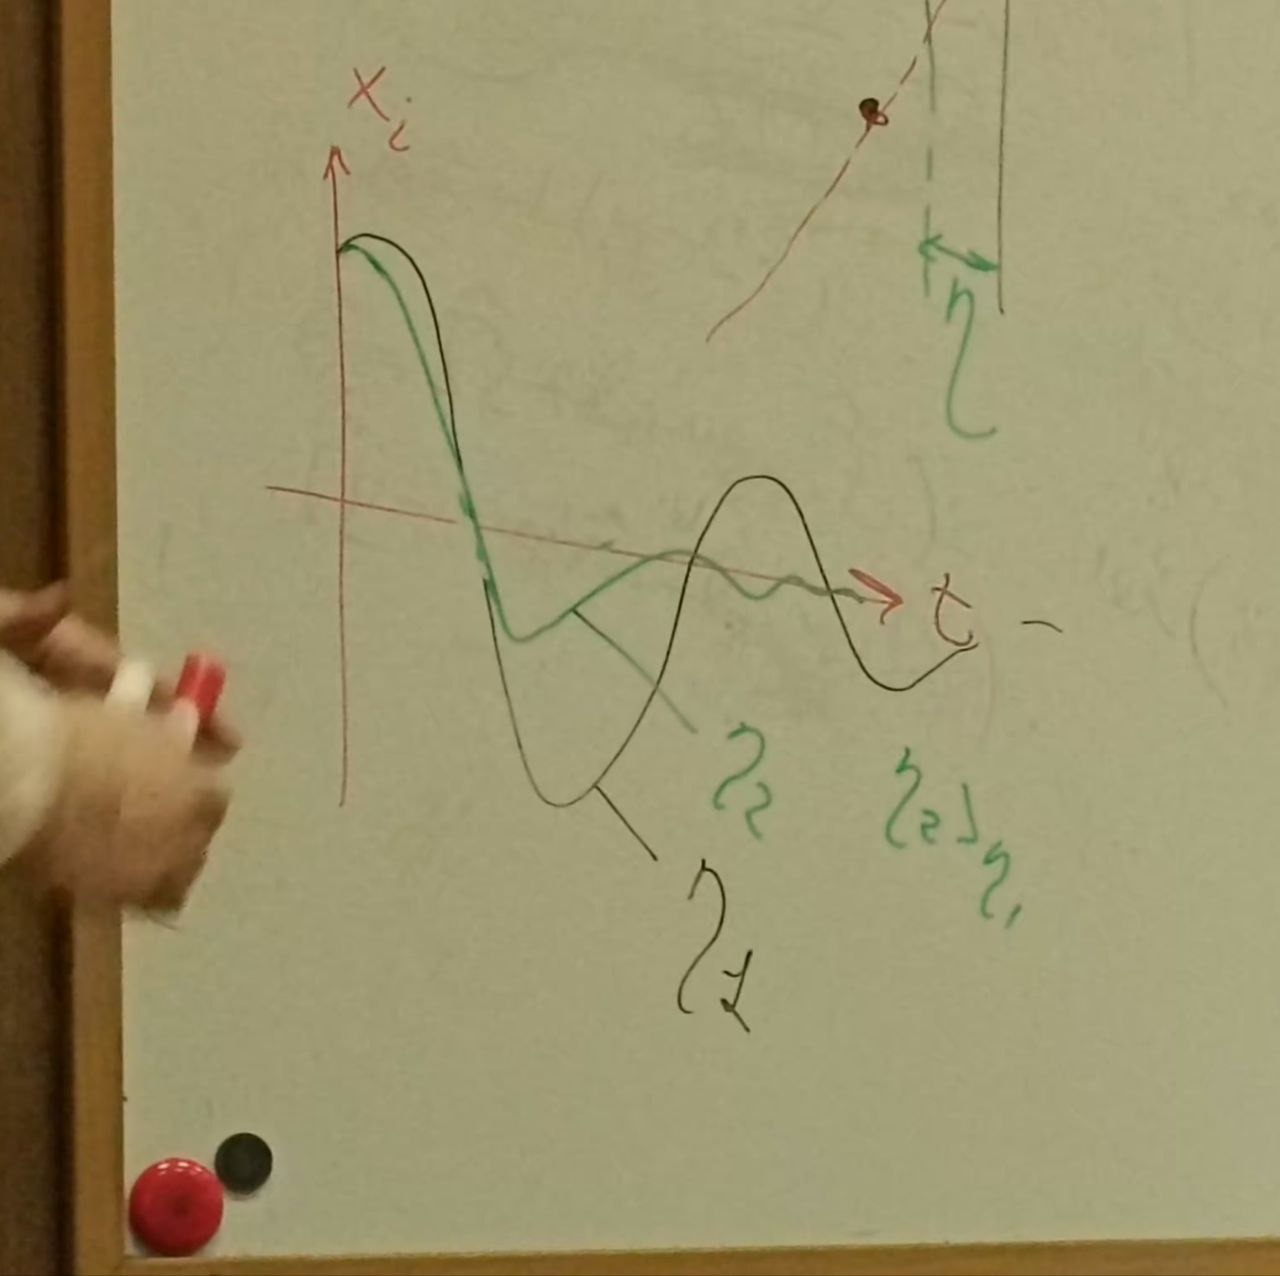 x_i
η
t
η₂
η₂ > η₁
η₁